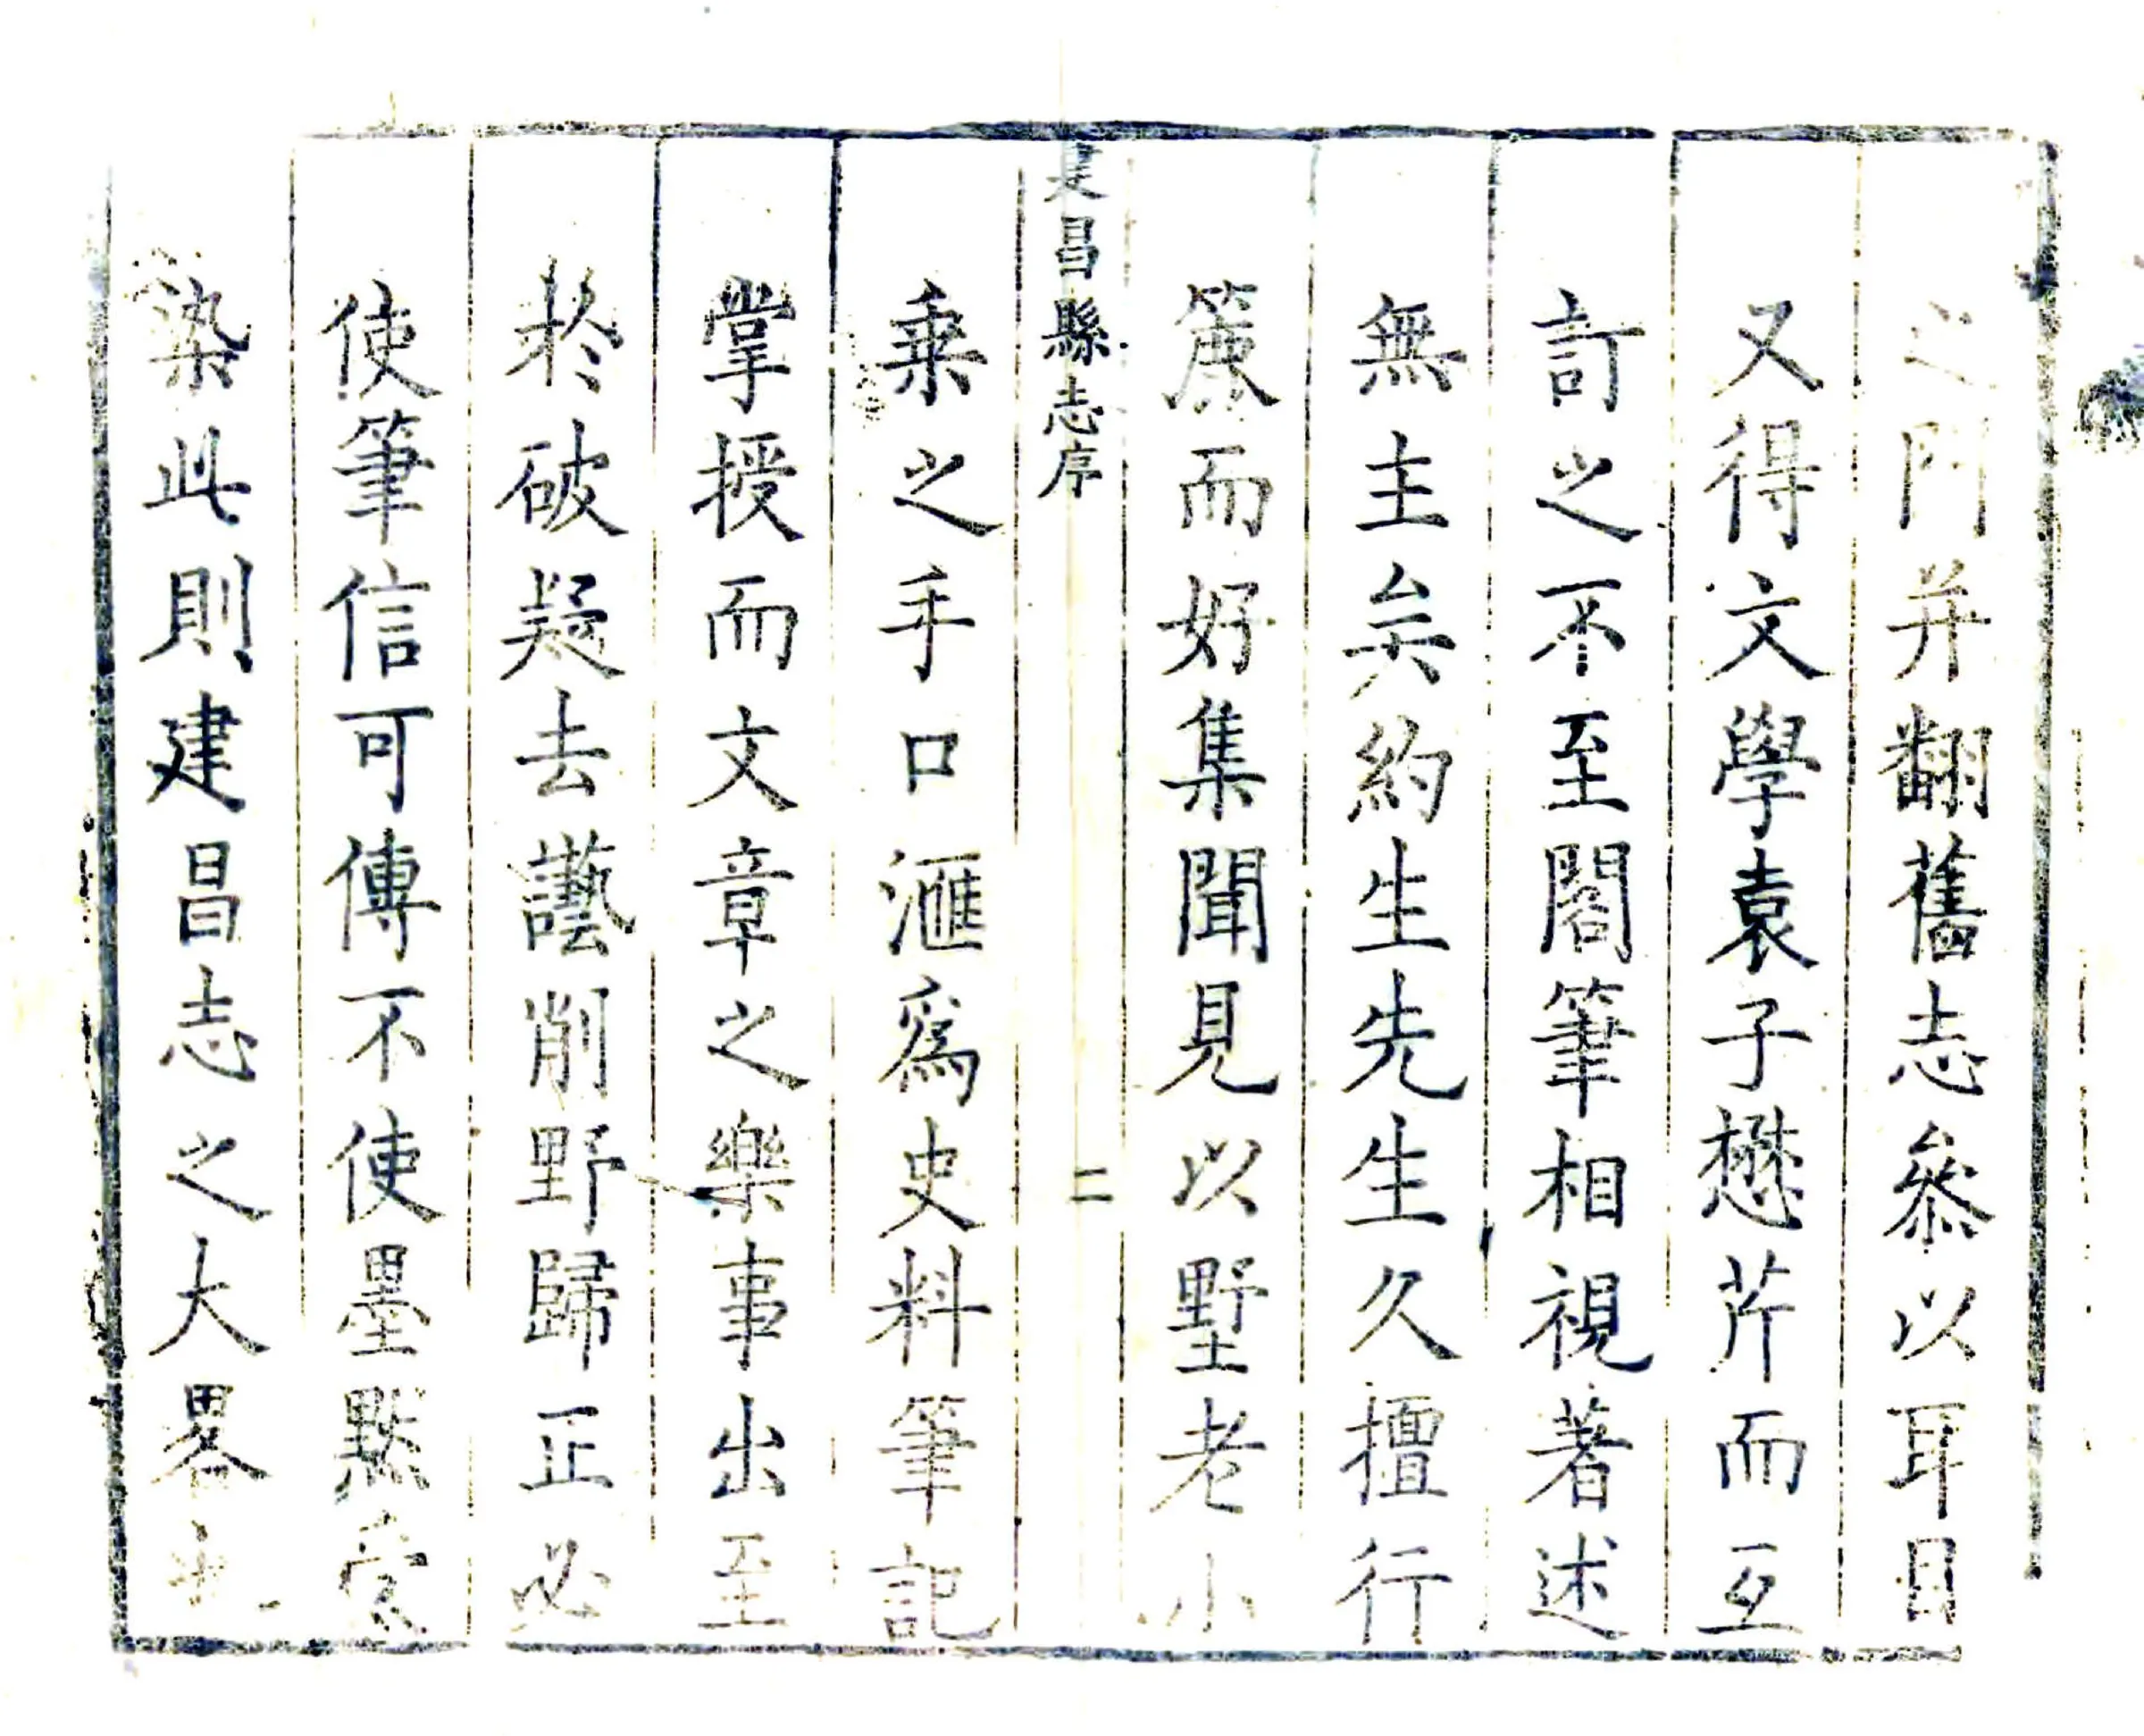 之門并翻舊志參以耳目
又得文學袁子懋芹而互
訂之不至閣筆相視著述
無主矣約生先生久擅行
篪而好集聞見以墅老小
建昌縣志序
二
乘之手口滙爲史料筆記
掌授而文章之樂事出至
於破疑去讆削野歸正必
使筆信可傳不使墨黙受
染此則建昌志之大畧也